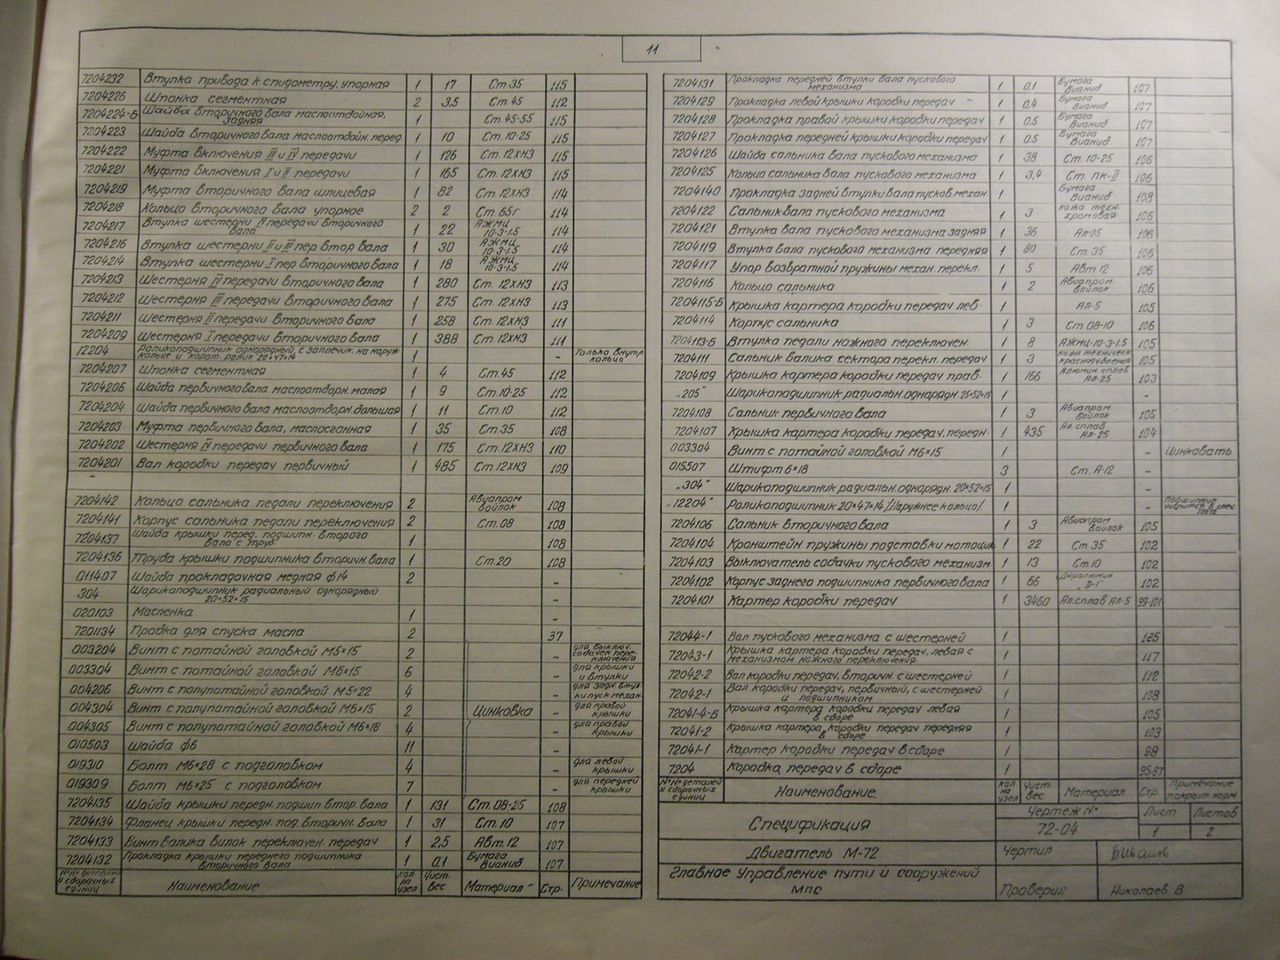 11
7204232 Втулка привода к спидометру, упорная 1 17 Ст. 35 115
7204226 Шпонка сегментная 2 3,5 Ст. 45 112
7204224-Б Шайба вторичного вала маслоотбойная, задняя 1 Ст. 45-55 115
7204223 Шайба вторичного вала маслоотбойн. перед. 1 10 Ст. 10-25 115
7204222 Муфта включения III и IV передачи 1 126 Ст. 12ХН3 115
7204221 Муфта включения I и II передачи 1 165 Ст. 12ХН3 115
7204219 Муфта вторичного вала шлицевая 1 82 Ст. 12ХН3 114
7204218 Кольцо вторичного вала упорное 2 2 Ст. 65г 114
7204217 Втулка шестерни IV передачи вторичного вала 1 22 АЖМЦ 10-3-1.5 114
7204216 Втулка шестерни II и III пер втор вала 1 30 АЖМЦ 10-3-1.5 114
7204214 Втулка шестерни I пер вторичного вала 1 18 АЖМЦ 10-3-1.5 114
7204213 Шестерня IV передачи вторичного вала 1 280 Ст. 12ХН3 113
7204212 Шестерня III передачи вторичного вала 1 275 Ст. 12ХН3 113
7204211 Шестерня II передачи вторичного вала 1 258 Ст. 12ХН3 111
7204209 Шестерня I передачи вторичного вала 1 388 Ст. 12ХН3 111
12204 Роликоподшипник однорядный, с запречик. на наруж кольце и корот. ролик 20×47×14 1 - Только внутр. кольцо
7204207 Шпонка сегментная 1 4 Ст. 45 112
7204206 Шайба первичного вала маслоотдорн. малая 1 9 Ст. 10-25 112
7204204 Шайба первичного вала маслоотдорн. большая 1 11 Ст. 10 112
7204203 Муфта первичного вала, маслосгонная 1 35 Ст. 35 108
7204202 Шестерня IV передачи первичного вала 1 175 Ст. 12ХН3 110
7204201 Вал коробки передач первичный 1 485 Ст. 12ХН3 109
7204142 Кольцо сальника педали переключения 2 Авиапром войлок 108
7204141 Корпус сальника педали переключения 2 Ст. 08 108
7204137 Шайба крышки перед. подшипн. второго вала с труб 1 108
7204136 Труба крышки подшипника вторичн. вала 1 Ст. 20 108
011407 Шайба прокладочная медная ф14 2 -
304 Шарикоподшипник радиальный однорядный 20×52×15 -
020103 Масленка 1 -
7201134 Пробка для спуска масла 2 37
003204 Винт с потайной головкой М5×15 2 - для выключ. собачек переключения
003304 Винт с потайной головкой М6×15 6 - для крышки и втулки
004206 Винт с полупотайной головкой М5×22 4 - для задн. втулки пуск механ.
004304 Винт с полупотайной головкой М6×15 2 Цинковка - для правой крышки
004305 Винт с полупотайной головкой М6×18 4 - для правой крышки
010503 Шайба ф6 11 -
019310 Болт М6×28 с подголовком 4 - для левой крышки
019309 Болт М6×25 с подголовком 7 - для передней крышки
7204135 Шайба крышки передн. подшип втор. вала 1 131 Ст. 08-25 108
7204134 Фланец крышки передн. под. вторичн. вала 1 31 Ст. 10 107
7204133 Винт валика вилок переключен. передач 1 2,5 Авт. 12 107
7204132 Прокладка крышки переднего подшипника вторичного вала 1 0,1 Бумага Вианид 107
№№ деталей и сборочных единиц Наименование Кол на узел Чист. вес Материал Стр. Примечание
7204131 Прокладка передней втулки вала пускового механизма 1 0,1 Бумага Вианид 107
7204129 Прокладка левой крышки коробки передач 1 0.4 Бумага Вианид 107
7204128 Прокладка правой крышки коробки передач 1 0.5 Бумага Вианид 107
7204127 Прокладка передней крышки коробки передач 1 0.5 Бумага Вианид 107
7204126 Шайба сальника вала пускового механизма 1 38 Ст. 10-25 106
7204125 Кольцо сальника вала пускового механизма 1 3,4 Ст. ПК-II 106
7204140 Прокладка задней втулки вала пусков механ 1 Бумага Вианид 108
7204122 Сальник вала пускового механизма 1 3 кожа техн. хромовая 106
7204121 Втулка вала пускового механизма задняя 1 36 Ал-25 106
7204119 Втулка вала пускового механизма передняя 1 80 Ст. 35 106
7204117 Упор возвратной пружины механ перекл. 1 5 Авт 12 106
7204116 Кольцо сальника 1 2 Авиапром Войлок 106
7204115-Б Крышка картера коробки передач лев 1 Ал-5 105
7204114 Корпус сальника 1 3 Ст. 08-10 106
7204113-Б Втулка педали ножного переключен. 1 8 АЖМЦ-10-3-1.5 105
7204111 Сальник валика сектора перекл. передач 1 3 кожа техническ краснодубленая 105
7204109 Крышка картера коробки передач прав. 1 166 Алюмин. сплав Ал-25 103
"205" Шарикоподшипник радиальн. однорядн. 25×52×15 1 -
7204108 Сальник первичного вала 1 3 Авиапром Войлок 105
7204107 Крышка картера коробки передач, передн 1 435 Ал. сплав Ал-25 104
003304 Винт с потайной головкой М6×15 1 - Цинковать
015507 Штифт 6×18 3 Ст. А-12 -
"304" Шарикоподшипник радиальн. однорядн. 20×52×15 1 -
"12204" Роликоподшипник 20×47×14 /Наружнее кольцо/ 1 -
7204106 Сальник вторичного вала 1 3 Авиапром Войлок 105
7204104 Кронштейн пружины подставки мотоцик 1 22 Ст. 35 102
7204103 Выключатель собачки пускового механизм 1 13 Ст. 10 102
7204102 Корпус заднего подшипника первичного вала 1 66 Дюралюмин "Д-1" 102
7204101 Картер коробки передач 1 3460 Ал. сплав Ал-5 99-101
72044-1 Вал пускового механизма с шестерней 125
72043-1 Крышка картера коробки передач, левая с механизмом ножного переключения 117
72042-2 Вал коробки передач, вторичн. с шестерней 112
72042-1 Вал коробки передач, первичный, с шестерней и подшипником 108
72041-4-Б Крышка картера коробки передач левая в сборе 105
72041-2 Крышка картера коробки передач передняя в сборе 103
72041-1 Картер коробки передач в сборе 98
7204 Коробка передач в сборе 95-97
№№ деталей и сборочных единиц Наименование кол на узел Чист. вес Материал Стр Примечание покрыт. норм
Спецификация Чертеж № 72-04 Лист 1 Листов 2
Двигатель М-72 Чертил
Главное Управление пути и сооружений МПС Проверил Николаев В